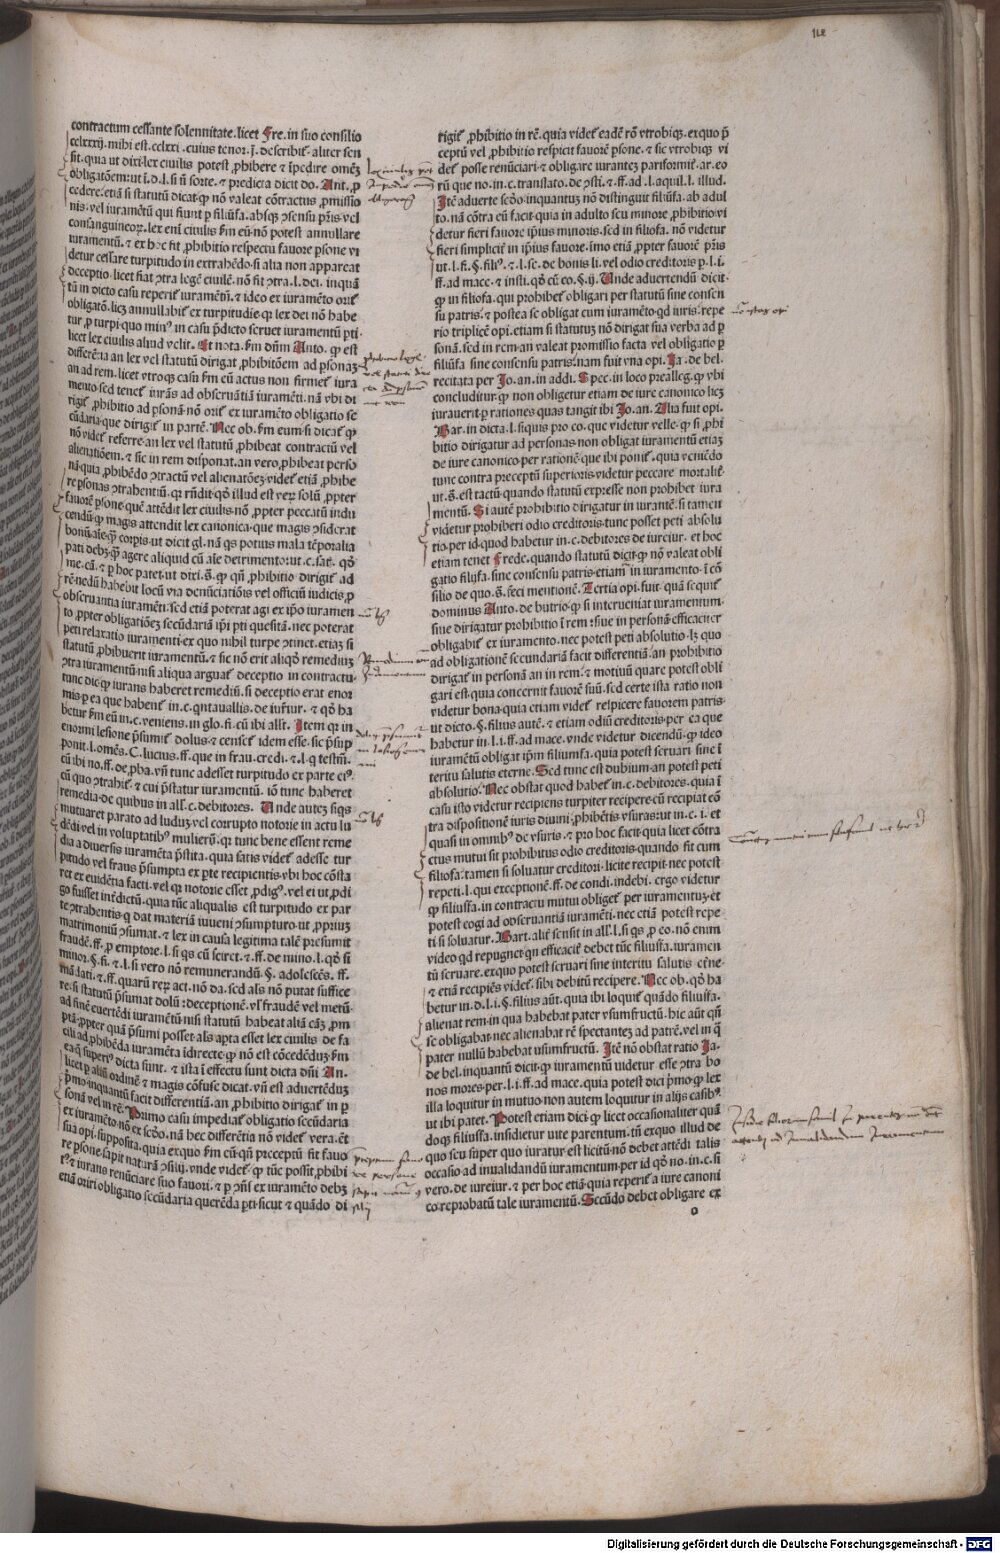 contractum cessante solennitate. licet Fre. in suo consilio
cclxxij. mihi est. cclxxi. cuius tenor. j. describit᷑. aliter sen
sit. quia ut dixi. lex ciuilis potest ꝓhibere ⁊ īpedire omēȝ
obligatōem: ut ī. d. l. si ñ sorte. ⁊ predicta dicit do. Ant. ꝓ
cedere. etiā si statutū dicat. ꝙ nō valeat cōtractus, ꝓmissio
nis. vel iuramētū qui fiunt ꝑ filiūfa. absqȝ ɔsensu pr̄is. vel
consanguineoꝝ. lex eni᷒ ciuilis ẜm eū. nō potest annullare
iuramentū. ⁊ ex hoc fit ꝓhibitio respectu fauore ꝑsone vi
detur cessare turpitudo in extrahēdo. si alia non appareat
deceptio. licet fiat ɔtra legē ciuilē. nō fit ɔtra. l. dei. inquā
tū in dicto casu reperit᷑ iuramētū. ⁊ ideo ex iuramēto orit᷑
obligatō. licȝ annullabit᷑ ex turpitudīe. qȝ lex dei nō habe
tur ꝓ turpi. quo min᷒ in casu ꝑdicto seruet iuramentū pti.
licet lex ciuilis aliud velit. Et nota. ẜm dn̄m Anto. ꝙ est
differētia an lex vel statutū dirigat ꝓhibitōem ad ꝑsonaȝ
an ad rem. licet vtroqȝ casu ẜm eū actus non firmet᷑ iura
mento sed tenet᷑ iurās ad obseruātiā iuramēti. nā vbi di
rigit᷑ ꝓhibitio ad ꝑsonā. nō orit᷑ ex iuramēto obligatio se
cūdaria. que dirigit᷑ in partē. Nec ob. ẜm eum. si dicat᷑ ꝙ
nō videt᷑ referre. an lex vel statutū ꝓhibeat contractū vel
alienatiōem. ⁊ sic in rem disponat. an vero ꝓhibeat perso
nā. quia ꝓhibēdo ɔtractū vel alienatōeȝ. videt᷑ etiā ꝓhibe
re ꝑsonas ɔtrahentiū. qȝ rn̄dit᷑ qȝ illud est veꝝ solū ꝓpter
fauorē ꝑsone. quē attēdit lex ciuilis. nō ꝓpter peccatū indu
cendū. ꝙ magis attendit lex canonica. que magis ɔsiderat
bonū aīe. ꝙ corpis. ut dicit gl. nā qs potius mala tēporalia
pati debȝ. ꝙ agere aliquid cū aīe detrimento: ut. c. sac. qȝ
me. cā. ⁊ ꝑ hoc patet. ut dixi. s̄. ꝙ qn̄ ꝓhibitio dirigit᷑ ad
rē. nedū habebit locū via denūciatiōis vel officiū iudicis. ꝓ
obseruantia iuramēti: sed etiā poterat agi ex ip̄o iuramen
to. ꝓpter obligatiōeȝ secūdariā ip̄i pti quesitā. nec poterat
peti relaxatio iuramenti. ex quo nihil turpe ɔtinet. etiaȝ si
statutū ꝓhibuerit iuramentū. ⁊ sic nō erit aliqȝ remediuȝ
ɔtra iuramentū. nisi aliqua arguat᷑ deceptio in contractu.
tunc dic. ꝙ iurans haberet remediū. si deceptio erat enor
mis. ꝑ ea que habent᷑ in. c. qntauallis. de iur᷑iur. ⁊ qȝ ha
betur ẜm eū in. c. veniens. in glo. fi. cū ibi all᷑. Item qȝ in
enormi lesione ꝑsumit᷑ dolus. ⁊ censet᷑ idem esse. sic ꝑsup
ponit. l. omēs. C. lucius. ff. que in frau. credi. ⁊. l. q testm̄.
cū ibi no. ff. de ꝓba. vn̄ tunc adesset turpitudo ex parte ei᷒.
cū quo ɔtrahit᷑. ⁊ cui ꝑstatur iuramentū. iō tunc haberet
remedia. de quibus in all᷑. c. debitores. Unde auteȝ siqs
mutuaret parato ad ludūȝ. vel corrupto notorie in actu lu
dēdi. vel in voluptatib᷒ mulierū. qȝ tunc bene essent reme
dia a diuersis. iuramēta ꝑstita. quia satis videt᷑ adesse tur
pitudo vel fraus ꝑsumpta ex ꝑte recipientis. vbi hoc cōsta
ret ex euidētia facti. vel qȝ notorie esset ꝓdig᷒. vel ei ut ꝓdi
go fuisset int᷑dictū. quia tūc aliqualis est turpitudo ex par
te ɔtrahentis. q dat materiā iuueni ɔsumpturo. ut ꝓpriuȝ
matrimoniū ɔsumat. ⁊ lex in causa legitima talē presumit
fraudē. ff. ꝓ emptore. l. si qs cū sciret. ⁊. ff. de mino. l. qȝ si
minor. §. fi. ⁊. l. si vero nō remunerandū. §. adolescēs. ff.
mādati. ⁊. ff. quarū reꝝ act. nō da. sed als nō putat suffice
re. si statutū ꝑsumat dolū: deceptionē. vl᷑ fraudē vel metū.
ad finē euertēdi iuramētū. nisi statutū habeat aliā cāȝ ꝓm
ptā. ꝓpter quā ꝑsumi posset. als apta esset lex ciuilis de fa
cili ad ꝓhibēda iuramēta īdirecte. ꝙ nō est cōcedēdū. ẜm
ea. q superi᷒ dicta sunt. ⁊ ista ī effectu sunt dicta dn̄i An.
licet ꝑ aliū ordinē ⁊ magis cōfuse dicat. vn̄ est aduertēduȝ
ꝑmo. inquantū facit differentiā. an ꝓhibitio dirigat᷑ in ꝑ
sonā vel in rē. Primo casu impediat᷑ obligatio secūdaria
ex iuramēto. nō ex secūdo. nā hec differētia nō videt᷑ vera. et
sua opi. supposita. quia exquo ẜm cū. qn̄ pceptū fit fauo
re ꝑsone. sapit naturā ɔsilij. vnde videt᷑ ꝙ tūc possit ꝓhibi
t᷒. ⁊ iurans renūciare suo fauori. ⁊ ꝑ ɔn̄s ex iuramēto debȝ
etiā oriri obligatio secūdaria querēda pti. sicut ⁊ quādo di
rigit᷑ ꝓhibitio in rē. quia videt᷑ eadē rō vtrobiqȝ. exquo p̄
ceptū vel ꝓhibitio respicit fauorē ꝑsone. ⁊ sic vtrobiqȝ vi
det᷑ posse renūciari. ⁊ obligare iurantez pariformit᷑. ar. eo
rū que no. in. c. translato. de ɔsti. ⁊. ff. ad. l. aquil. l. illud.
Itē aduerte scd̄o. inquantuȝ nō distinguit filiūfa. ab adul
to. nā cōtra eū facit. quia in adulto seu minore ꝓhibitio vi
detur fieri fauore ip̄ius minoris. sed in filiofa. nō videtur
fieri simplicit᷑ in ip̄ius fauore. imo etiā ꝓpter fauorē pr̄is
ut. l. fi. §. fili᷒. ⁊. l. sc. de bonis li. vel odio creditoris ꝑ. l. i.
ff. ad mace. ⁊ insti. qȝ cū eo. §. ij. Unde aduertendū dicit.
ꝙ in filiofa. qui prohibet᷑ obligari per statutū sine consen
su patris. ⁊ postea se obligat cum iuramēto. qd iuris. repe
rio triplicē opi. etiam si statutuȝ nō dirigat sua verba ad ꝑ
sonā. sed in rem. an valeat promissio facta vel obligatio ꝑ
filiūfa sine consensu patris. nam fuit vna opi. Ia. de bel.
recitata per Jo. an. in addi. Spec. in loco preallegȝ. ꝙ vbi
concluditur. ꝙ non obligetur etiam de iure canonico licȝ
iurauerit. ꝑ rationes quas tangit ibi Jo. an. Alia fuit opi.
Bar. in dicta. l. siquis pro eo. que videtur velle. ꝙ si ꝓhi
bitio dirigatur ad personas. non obligat iuramentū etiaȝ
de iure canonico. per rationē. que ibi ponit᷑. quia veniēdo
tunc contra preceptū superioris videtur peccare mortalit᷑
ut. s̄. est tactū. quando statutū expresse non prohibet iura
mentū. Si autē prohibitio dirigatur in iurantē. si tamen
videtur prohiberi odio creditoris. tunc posset peti absolu
tio. per id. quod habetur in. c. debitores. de iureiur. et hoc
etiam tenet Frede. quando statutū dicit. ꝙ nō valeat obli
gatio filijfa. sine consensu patris. etiam in iuramento. ī cō
silio de quo. s̄. feci mentionē. Tertia opi. fuit. quā sequit᷑
dominus Anto. de butrio. ꝙ si interueniat iuramentum.
siue dirigatur prohibitio ī rem: siue in personā efficaciter
obligabit᷑ ex iuramento. nec potest peti absolutio. lȝ quo
ad obligationē secundariā facit differentiā. an prohibitio
dirigat᷑ in personā. an in rem. ⁊ motiuū quare potest obli
gari est. quia concernit fauorē suū. sed certe ista ratio non
videtur bona. quia etiam videt᷑ respicere fauorem patris
ut dicto. §. filius autē. ⁊ etiam odiū creditoris. per ea que
habetur in. l. i. ff. ad mace. vnde videtur dicendū. ꝙ ideo
iuramētū obligat ip̄m filiumfa. quia potest seruari sine ī
teritu salutis eterne. Sed tunc est dubium. an potest peti
absolutio. Nec obstat quod habet᷑ in. c. debitores. quia ī
casu isto videtur recipiens turpiter recipere. cū recipiat cō
tra dispositionē iuris diuini ꝓhibētis vsuras. ut in. c. i. et
quasi in omnib᷒ de vsuris. ⁊ pro hoc facit. quia licet cōtra
ctus mutui sit prohibitus odio creditoris. quando fit cum
filiofa: tamen si soluatur creditori. licite recipit. nec potest
repeti. l. qui exceptionē. ff. de condi. indebi. ergo videtur
ꝙ filiusfa. in contractu mutui obliget᷑ per iuramentuȝ. et
potest cogi ad obseruantiā iuramēti. nec etiā potest repe
ti si soluatur. Bart. alit᷑ sensit in all᷑. l. si qs ꝓ eo. nō enim
video qd repugnet. qn efficacit᷑ debet tūc filiusfa. iuramen
tū seruare. exquo potest seruari sine interitu salutis et᷑ne.
⁊ etiā recipiēs videt᷑. sibi debitū recipere. Nec ob. qȝ ha
betur in. d. l. i. §. filius aūt. quia ibi loquit᷑ quādo filiusfa.
alienat rem. in qua habebat pater vsumfructū. hic aūt qn̄
se obligabat. nec alienabat rē spectantez ad patrē. vel in q̄
pater nullū habebat usumfructū. Itē nō obstat ratio Ja.
de bel. inquantū dicit. ꝙ iuramentū videtur esse ɔtra bo
nos mores. per. l. i. ff. ad mace. quia potest dici ꝑmo. ꝙ lex
illa loquitur in mutuo. non autem loquitur in alijs casib᷒
ut ibi patet. Potest etiam dici. ꝙ licet occasionaliter quā
doqȝ filiusfa. insidietur uite parentum. tn̄ exquo illud de
quo seu super quo iuratur est licitū. nō debet attēdi talis
occasio ad inualidandū iuramentum. per id. qȝ no. in. c. si
vero. de iureiur. ⁊ per hoc etiā. quia reperit᷑ a iure canoni
co reprobatū tale iuramentū. Secūdo debet obligare ex
o
Digitalisierung gefördert durch die Deutsche Forschungsgemeinschaft - DFG